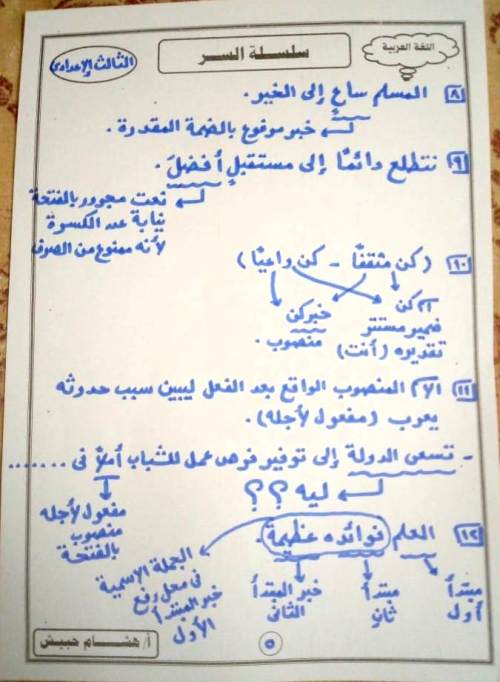 اللغة العربية
سلسلة السر
الثالث الإعدادى
٨ المسلم ساعٍ إلى الخير .
خبر مرفوع بالضمة المقدرة .
٩ نتطلع دائمًا إلى مستقبلٍ أفضلَ .
نعت مجرور بالفتحة
نيابة عن الكسرة
لأنه ممنوع من الصرف
١٠ (كن مثقفًا - كن واعيًا)
اسم كن
ضمير مستتر
تقديره (أنت)
خبر كن
منصوب .
١١ الاسم المنصوب الواقع بعد الفعل ليبين سبب حدوثه
يعرب (مفعول لأجله) .
- تسعى الدولة إلى توفير فرص عمل للشباب أملًا فى .......
ليه ؟؟
مفعول لأجله
منصوب
بالفتحة
١٢ العلم فوائده عظيمة .
مبتدأ
أول
مبتدأ
ثانٍ
خبر المبتدأ
الثانى
الجملة الاسمية
فى محل رفع
خبر المبتدأ
الأول
٥
أ/ هشام حبيش